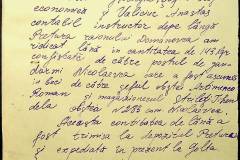 economică și Valeriu Anastas
contabil instructor depe lângă
Pretura raionului Domanovca am
ridicat lână in cantitatea de 145 kgr
confiscată de către postul de jan
darmi Nicolaevca care a fost
in loc de către șeful obștei Artimenco
Roman și magazionerul
dela obștea Nicolaevca
Această cantitatea de lână a
fost trimisă la depozitul Preturii
și expediată in prezent la Golta